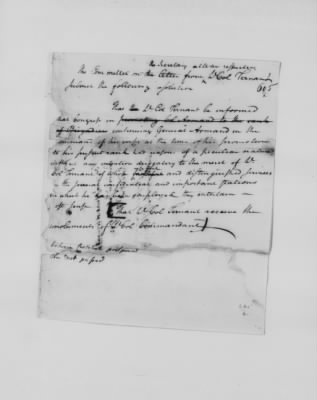 the Secretary at War respecting
the Com[mitt]ee on the letter from Lt Col Ternant
submit the following opinion
That Lt Col Ternant be informed
that Congress in promoting Col Armand to the rank
of Brigadier continuing General Armand in the
command of his corps at the time of his promotion
to his present rank had reason of a peculiar nature
without any intention derogatory to the merit of Lt
Col Ternant of whose and distinguished services
in the several confidential and important stations
in which he has been employed they entertain a
just sense
That Lt Col Ternant receive the
emoluments of Lt Col Commandant
postponed
the rest passed